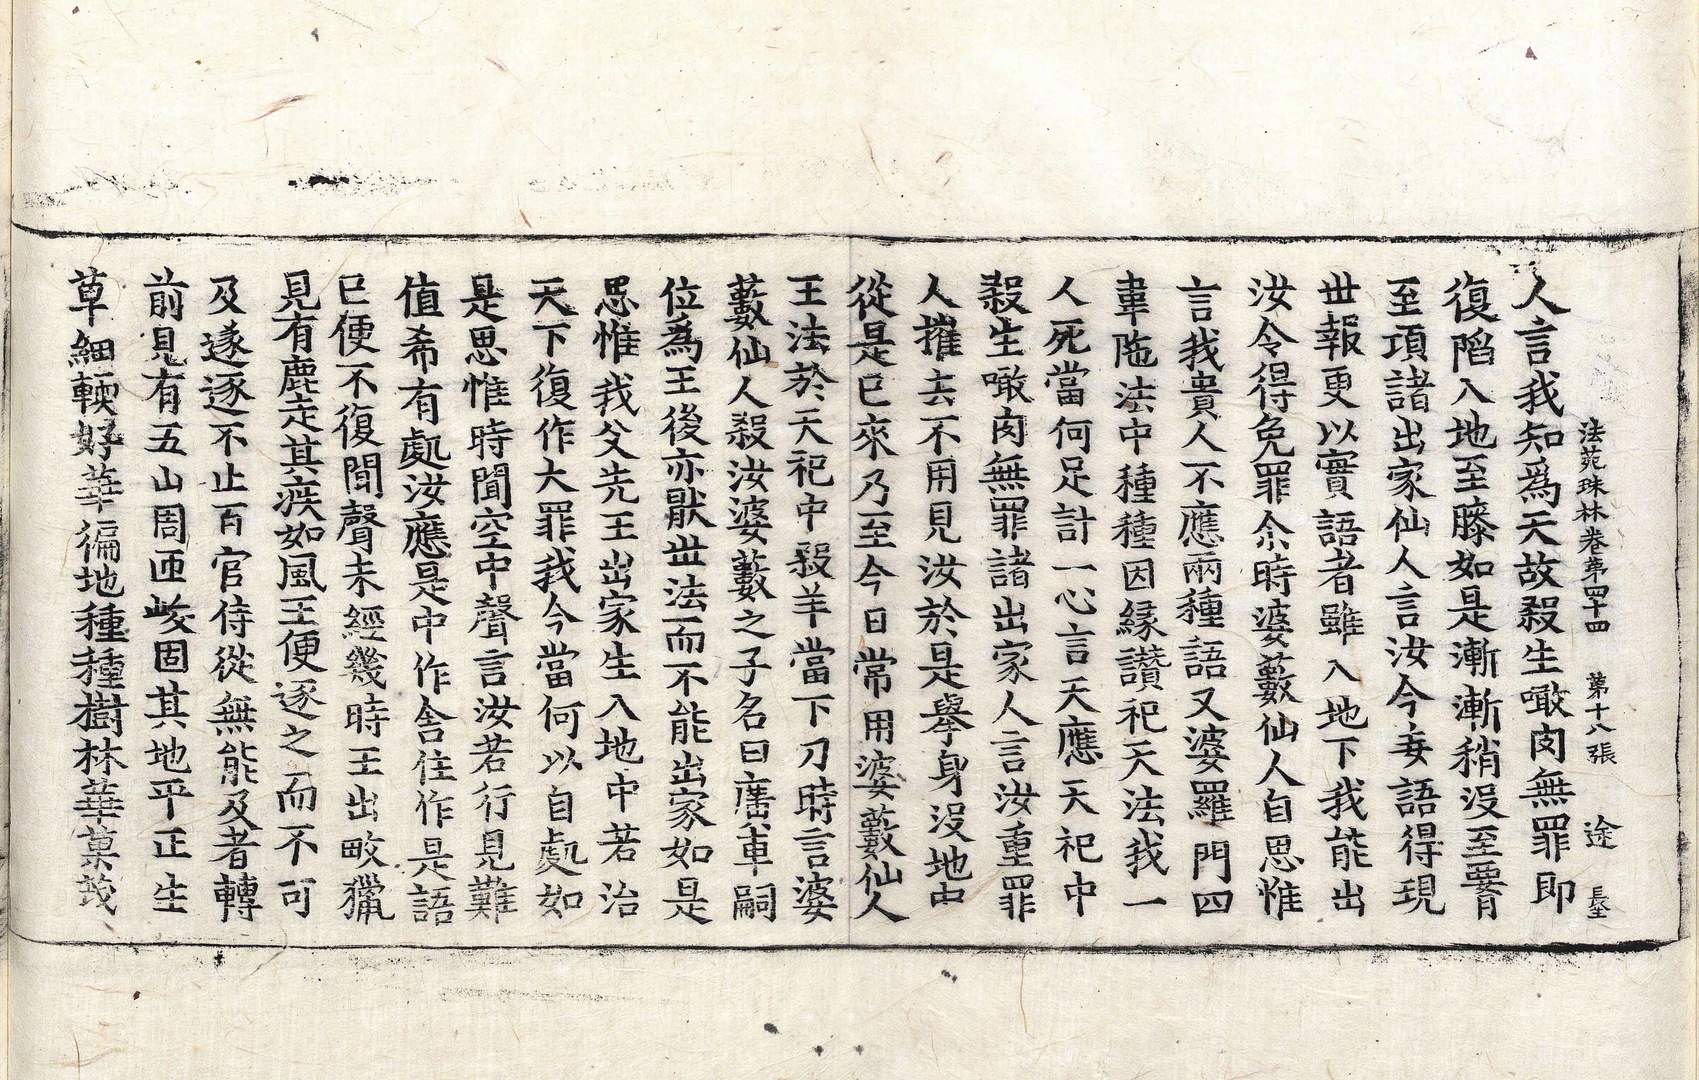 法苑珠林卷第四十四　第十八張　途
人言我知爲天故殺生噉肉無罪即
復陷入地至膝如是漸漸稍沒至𦝫
至項諸出家仙人言汝今妄語得現
世報更以實語者雖入地下我能出
汝令得免罪尒時婆藪仙人自思惟
言我貴人不應兩種語又婆羅門四
韋陁法中種種因緣讚祀天法我一
人死當何足計一心言天應天祀中
殺生噉肉無罪諸出家人言汝重罪
人摧去不用見汝於是舉身沒地中
從是已來乃至今日常用婆藪仙人
王法於天祀中殺羊當下刀時言婆
藪仙人殺汝婆藪之子名曰廣車嗣
位爲王後亦猒世法而不能出家如是
思惟我父先王出家生入地中若治
天下復作大罪我今當何以自處如
是思惟時聞空中聲言汝若行見難
值希有處汝應是中作舍住作是語
已便不復聞聲未經幾時王出畋獵
見有鹿走其疾如風王便逐之而不可
及遂逐不止百官侍從無能及者轉
前見有五山周匝峻固其地平正生
草細輭好華徧地種種樹林華菓茂